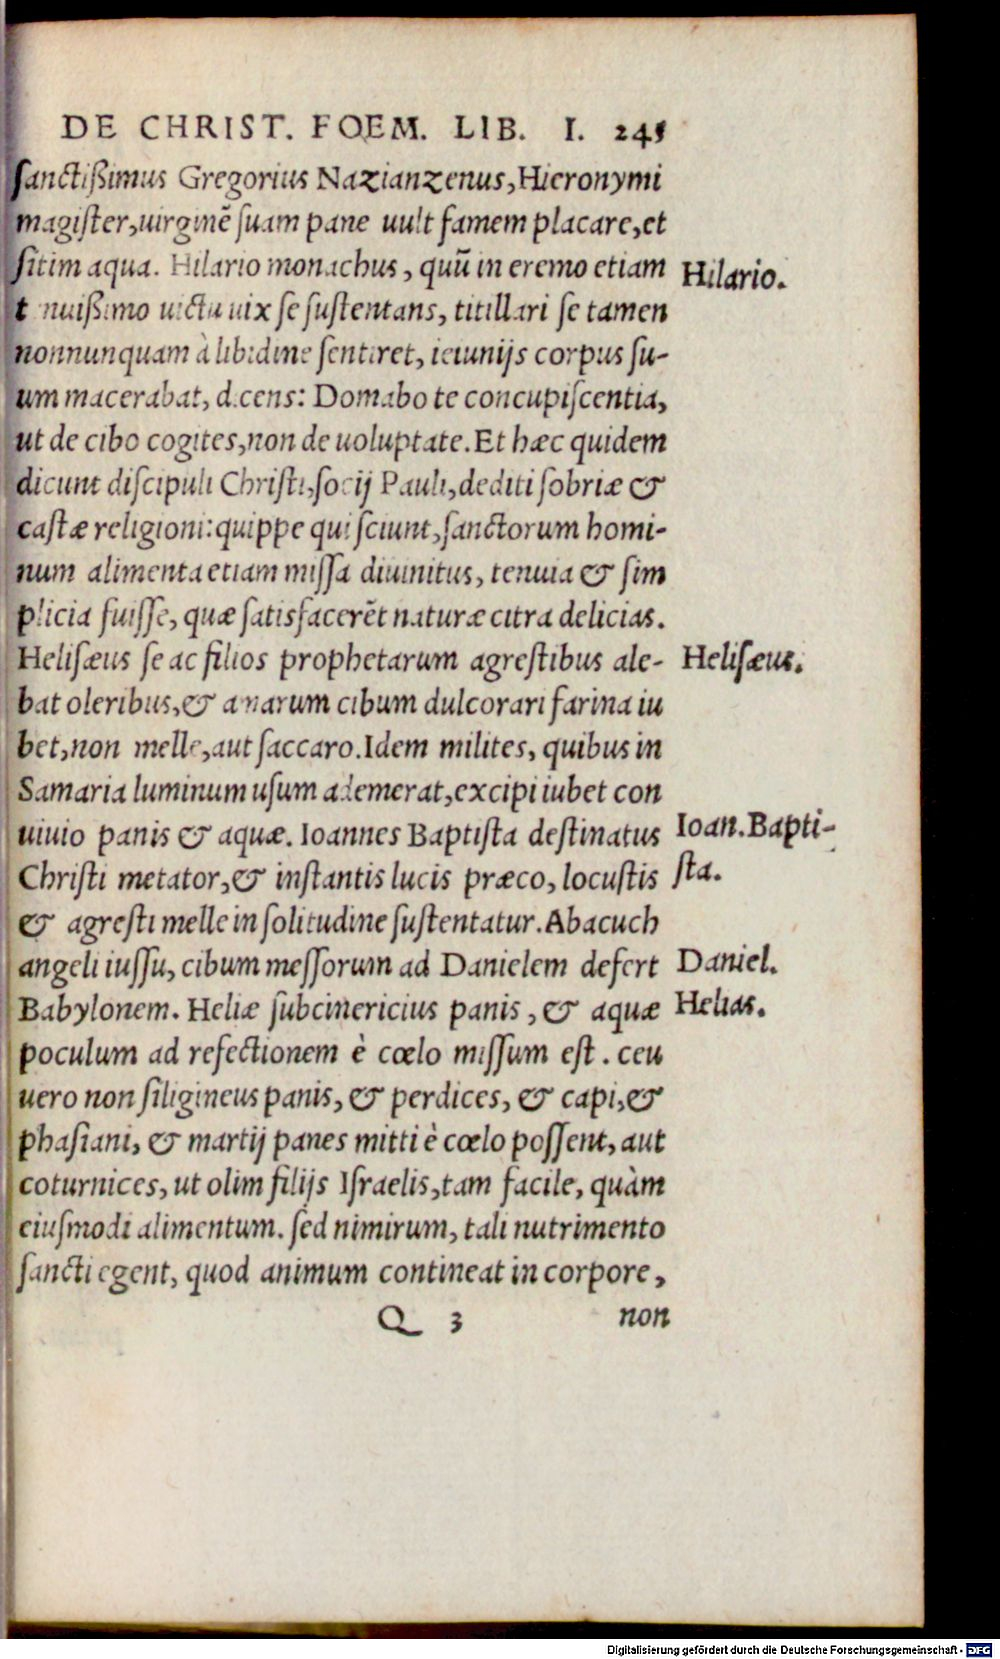 DE CHRIST. FOEM. LIB. I. 245
sanctißimus Gregorius Nazianzenus, Hieronymi
magister, uirginē suam pane uult famem placare, et
sitim aqua. Hilario monachus, quū in eremo etiam
Hilario.
t nuißimo uictu uix se sustentans, titillari se tamen
nonnunquam à libidine sentiret, ieiunijs corpus su-
um macerabat, dicens: Domabo te concupiscentia,
ut de cibo cogites, non de uoluptate. Et hæc quidem
dicunt discipuli Christi, socij Pauli, dediti sobriæ &
castæ religioni: quippe qui sciunt, sanctorum homi-
num alimenta etiam missa diuinitus, tenuia & sim
plicia fuisse, quæ satisfacerēt naturæ citra delicias.
Helisæus se ac filios prophetarum agrestibus ale-
Helisæus.
bat oleribus, & amarum cibum dulcorari farina iu
bet, non melle, aut saccaro. Idem milites, quibus in
Samaria luminum usum ademerat, excipi iubet con
uiuio panis & aquæ. Ioannes Baptista destinatus
Ioan. Bapti-
Christi metator, & instantis lucis præco, locustis
sta.
& agresti melle in solitudine sustentatur. Abacuch
angeli iussu, cibum messorum ad Danielem defert
Daniel.
Babylonem. Heliæ subcinericius panis, & aquæ
Helias.
poculum ad refectionem è cœlo missum est. ceu
uero non siligineus panis, & perdices, & capi, &
phasiani, & martij panes mitti è cœlo possent, aut
coturnices, ut olim filijs Israelis, tam facile, quàm
eiusmodi alimentum. sed nimirum, tali nutrimento
sancti egent, quod animum contineat in corpore,
Q 3 non
Digitalisierung gefördert durch die Deutsche Forschungsgemeinschaft - DFG